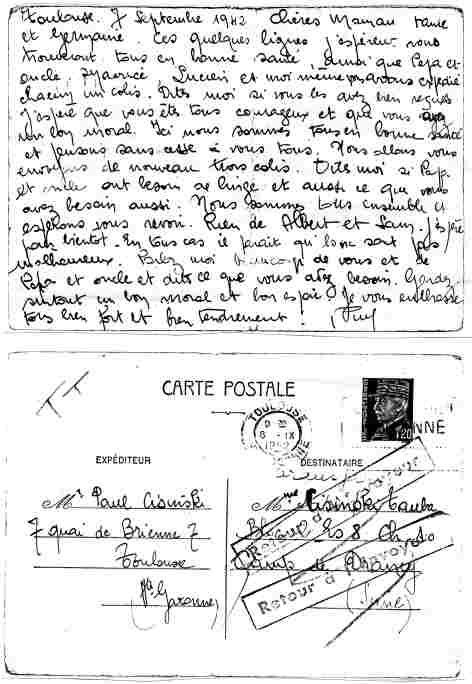 Toulouse. 7 Septembre 1942 Chères Maman tante
et Germaine. Ces quelques lignes j'espèrent vous
trouveront tous en bonne santé ainsi que Papa et
oncle. Lucien et moi même avons expédié
chacun un colis. Dites moi si vous les avez bien reçus
J'espère que vous êtes tous courageux et que vous avez
un bon moral. Ici nous sommes tous en bonne santé
et pensons sans cesse à vous tous. Nous allons vous
envoyons de nouveau trois colis. Dites moi si Papa
et oncle ont besoin de linge et aussi ce que vous
avez besoin aussi. Nous sommes tous ensemble et
espérons vous revoir. Rien de Albert et Sam. j'espère
pour bientôt. En tous cas il parait qu'ils ne sont pas
malheureux. Parlez moi beaucoup de vous et de
Papa et oncle et dites ce que vous avez besoin. Gardez
surtout un bon moral et bon espoir. Je vous embrasse
tous bien fort et bien tendrement !
CARTE POSTALE
TOULOUSE
8 - IX
1942
1F20
EXPÉDITEUR
DESTINATAIRE
Mr Paul Cisinski
7 quai de Brienne 7
Toulouse
(Hte Garonne)
Mme Cisinski Tauba
Camp de Drancy
(Seine)
Retour à l'Envoyeur
Retour à l'Envoyeur